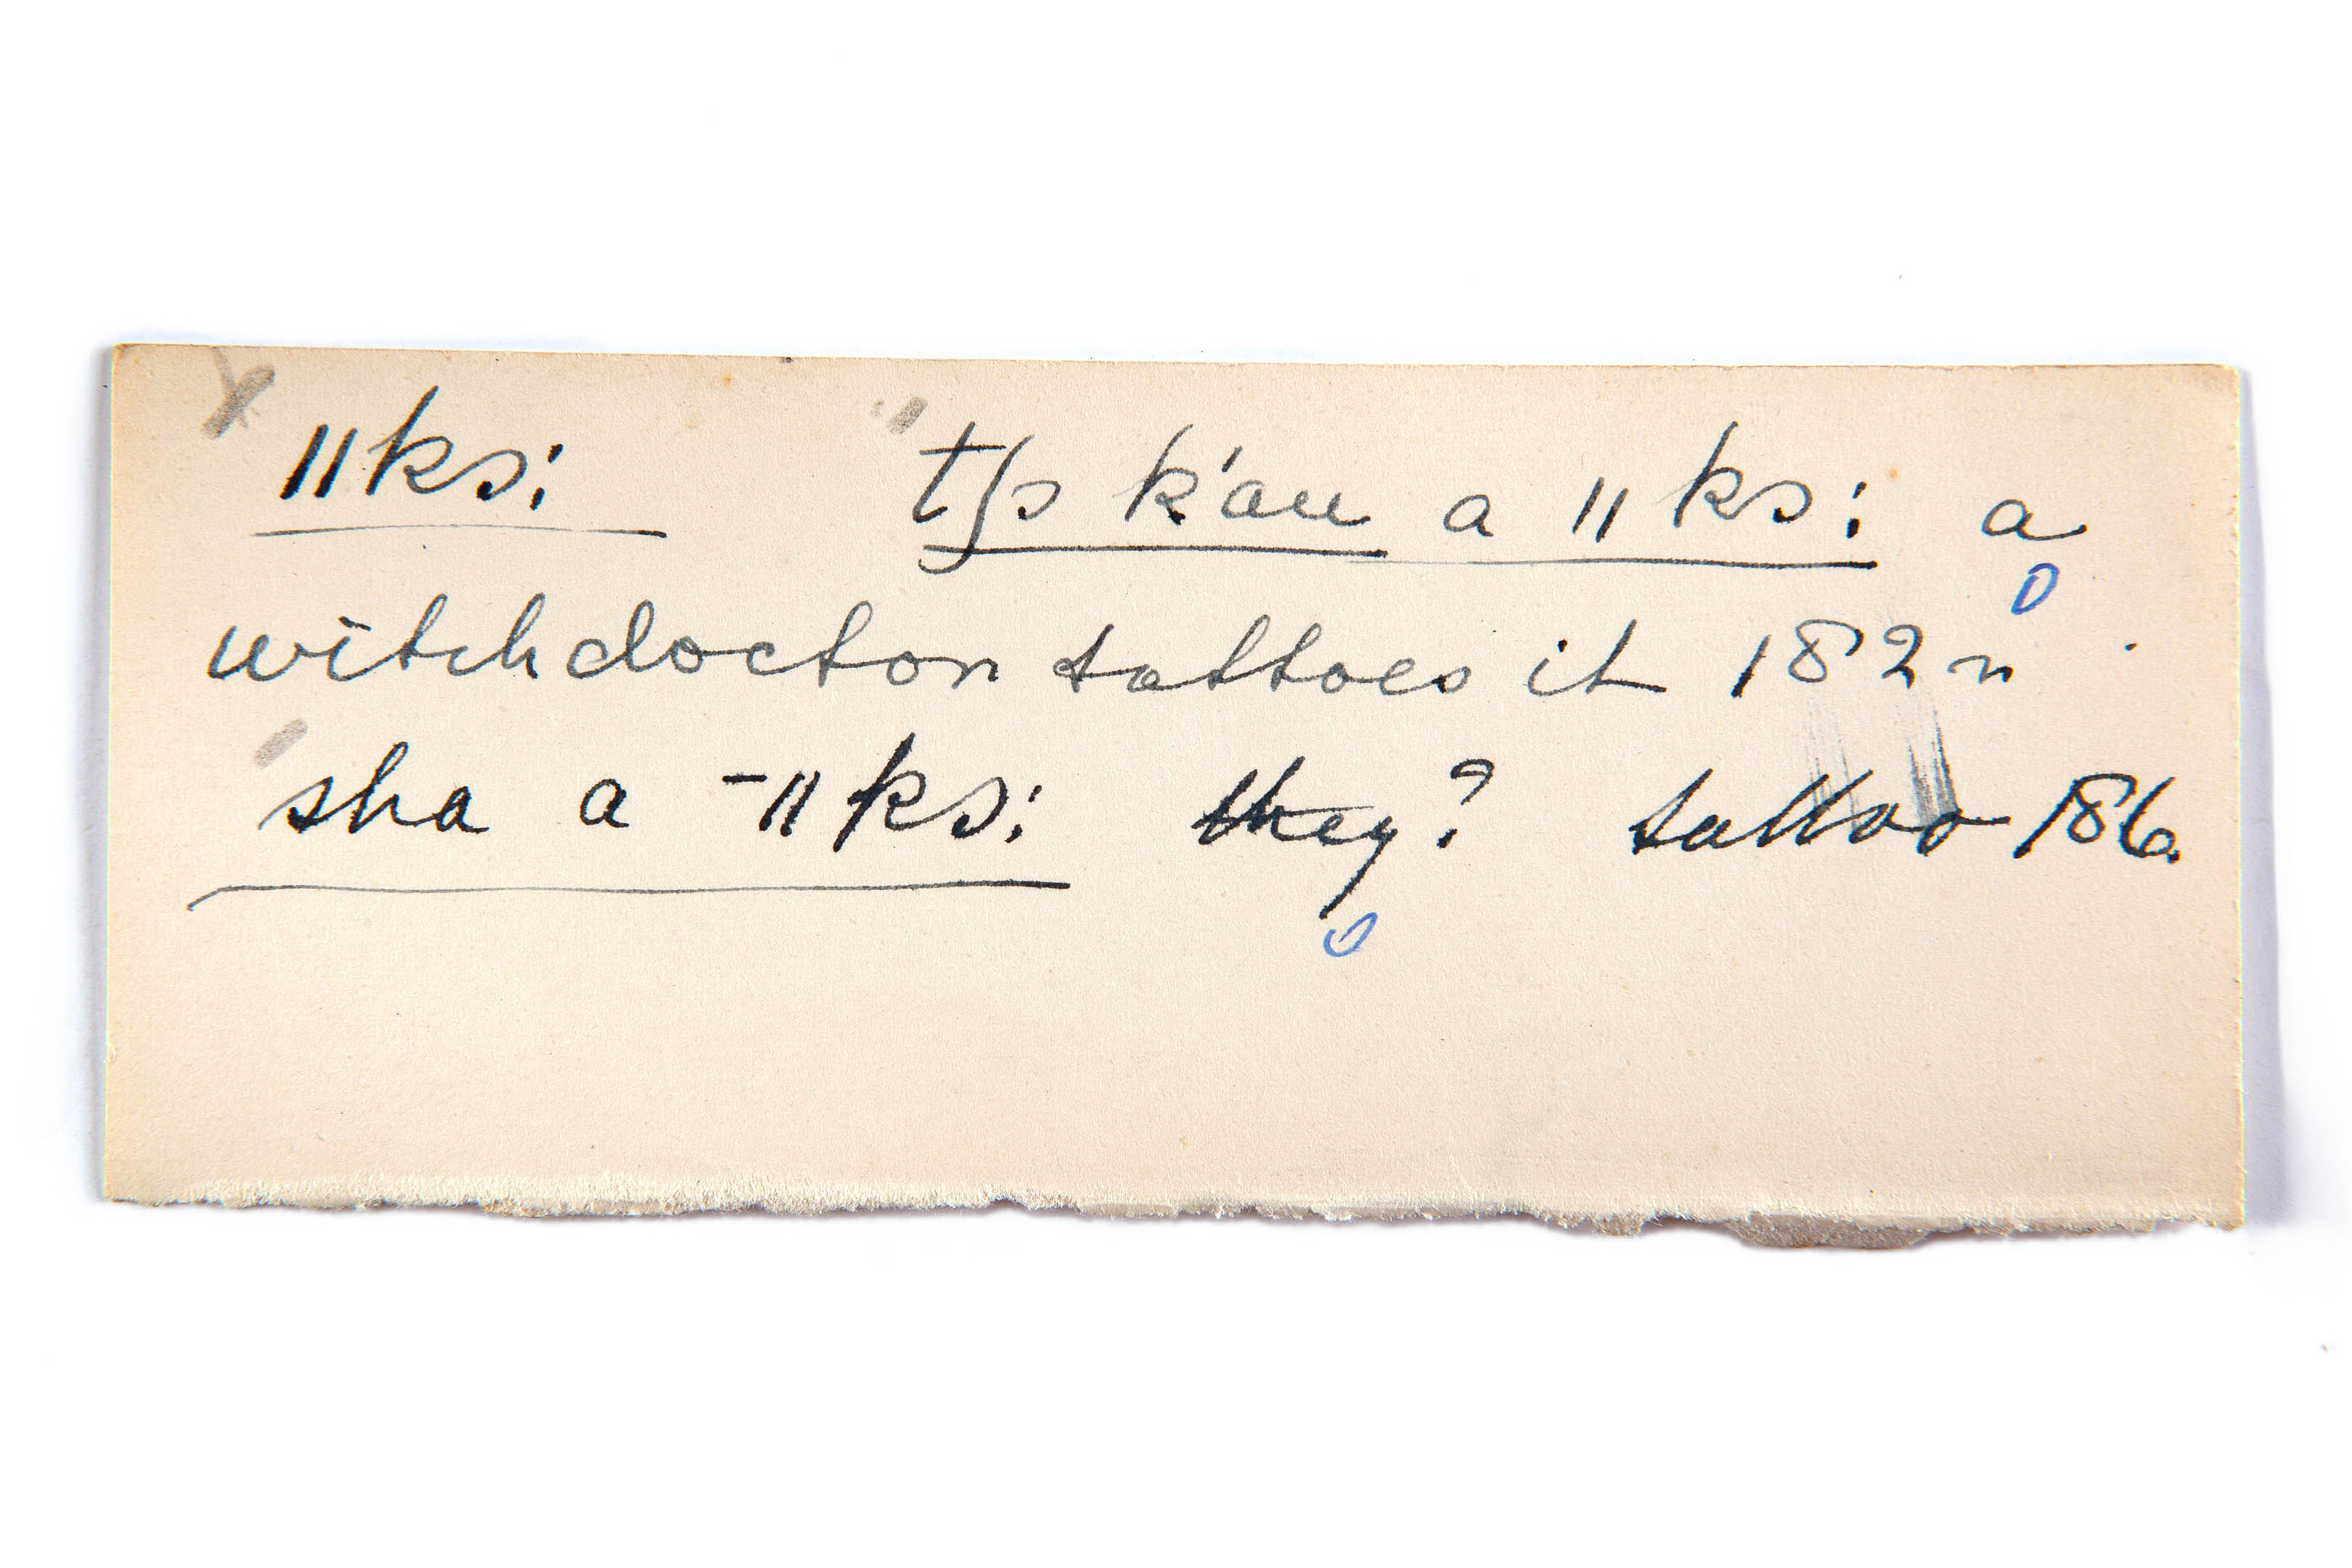 ǁksi tʃs k'au a ǁksi a
witchdoctor tattoes it 182n
sha a -ǁksi they? tattoo 186.